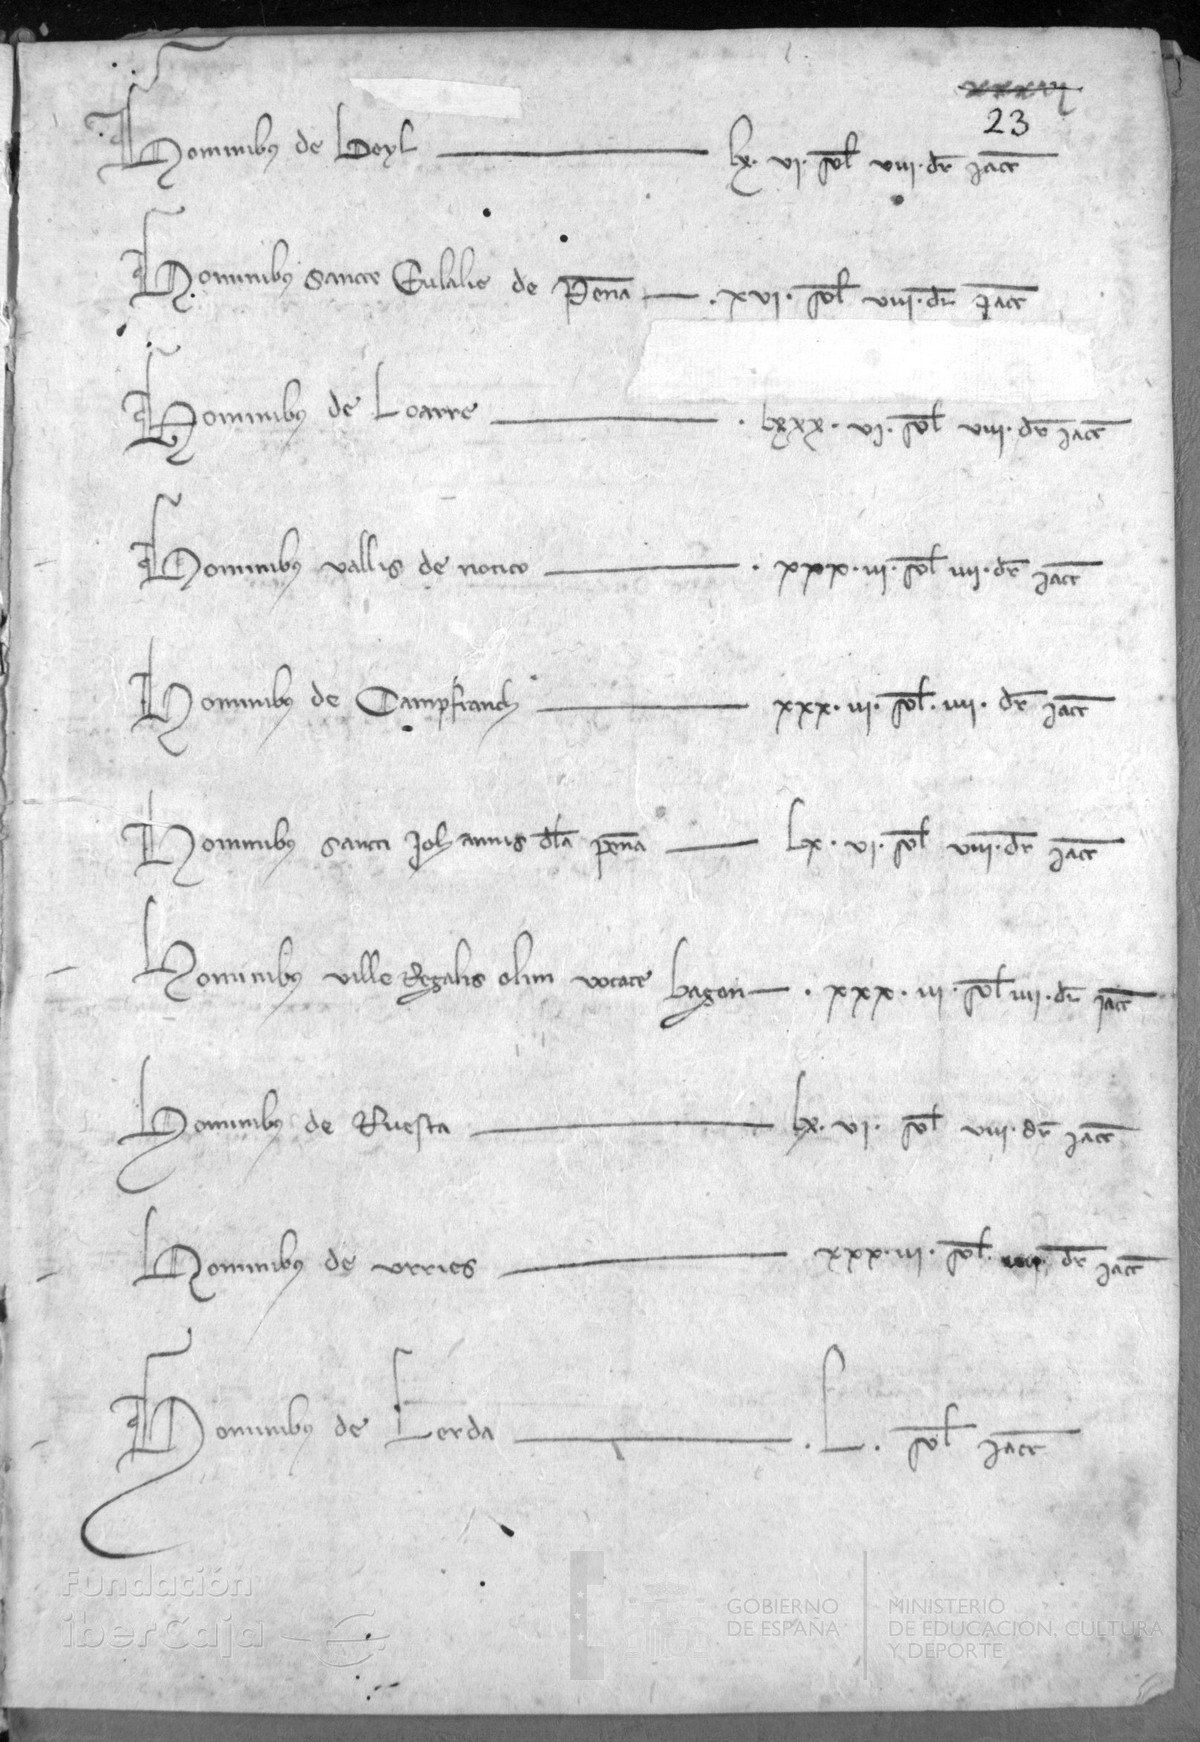 xxxvij
23
Hominibus de Beyl — lx. vi. sol viii. dr iacc
Hominibus sancte Eulalie de Pena — . xvi. sol viii. dr iacc
Hominibus de Loarre — . lxxx. vi. sol viii. dr iacc
Hominibus vallis de nocito — . xxx. iii. sol iiii. dr iacc
Hominibus de Campfranch — xxx. iii. sol. iiii. dr iacc
Hominibus sancti Johannis dla pena — lx. vi. sol viii. dr iacc
Hominibus ville Regalis olim vocate bagon — . xxx. iii. sol iiii. dr iacc
Hominibus de Ruesta — lx. vi. sol viii. dr iacc
Hominibus de vrries — xxx. iii. sol. dr iacc
Hominibus de Lerda — . L. sol iacc
Fundación
iberCaja
GOBIERNO
DE ESPAÑA
MINISTERIO
DE EDUCACIÓN, CULTURA
Y DEPORTE